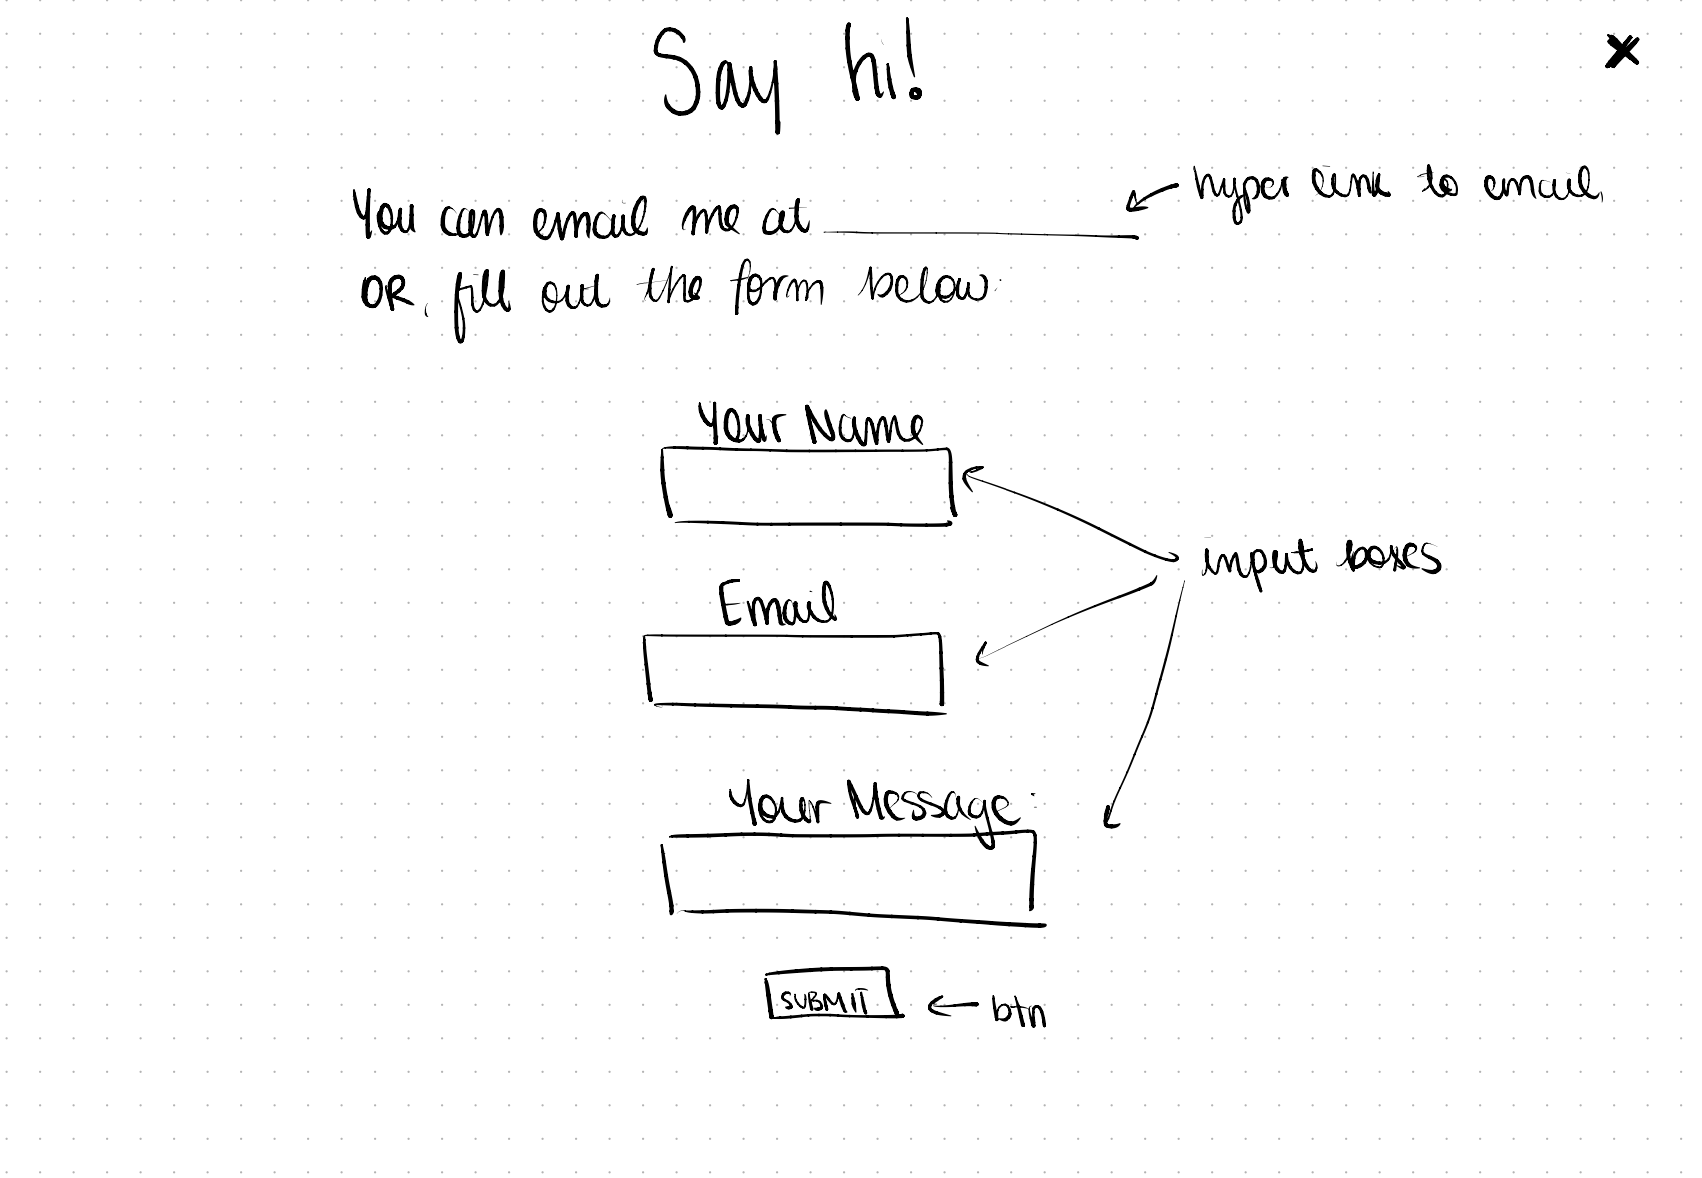 Say hi!
You can email me at
hyper link to email
OR, fill out the form below
Your Name
input boxes
Email
Your Message
SUBMIT
btn